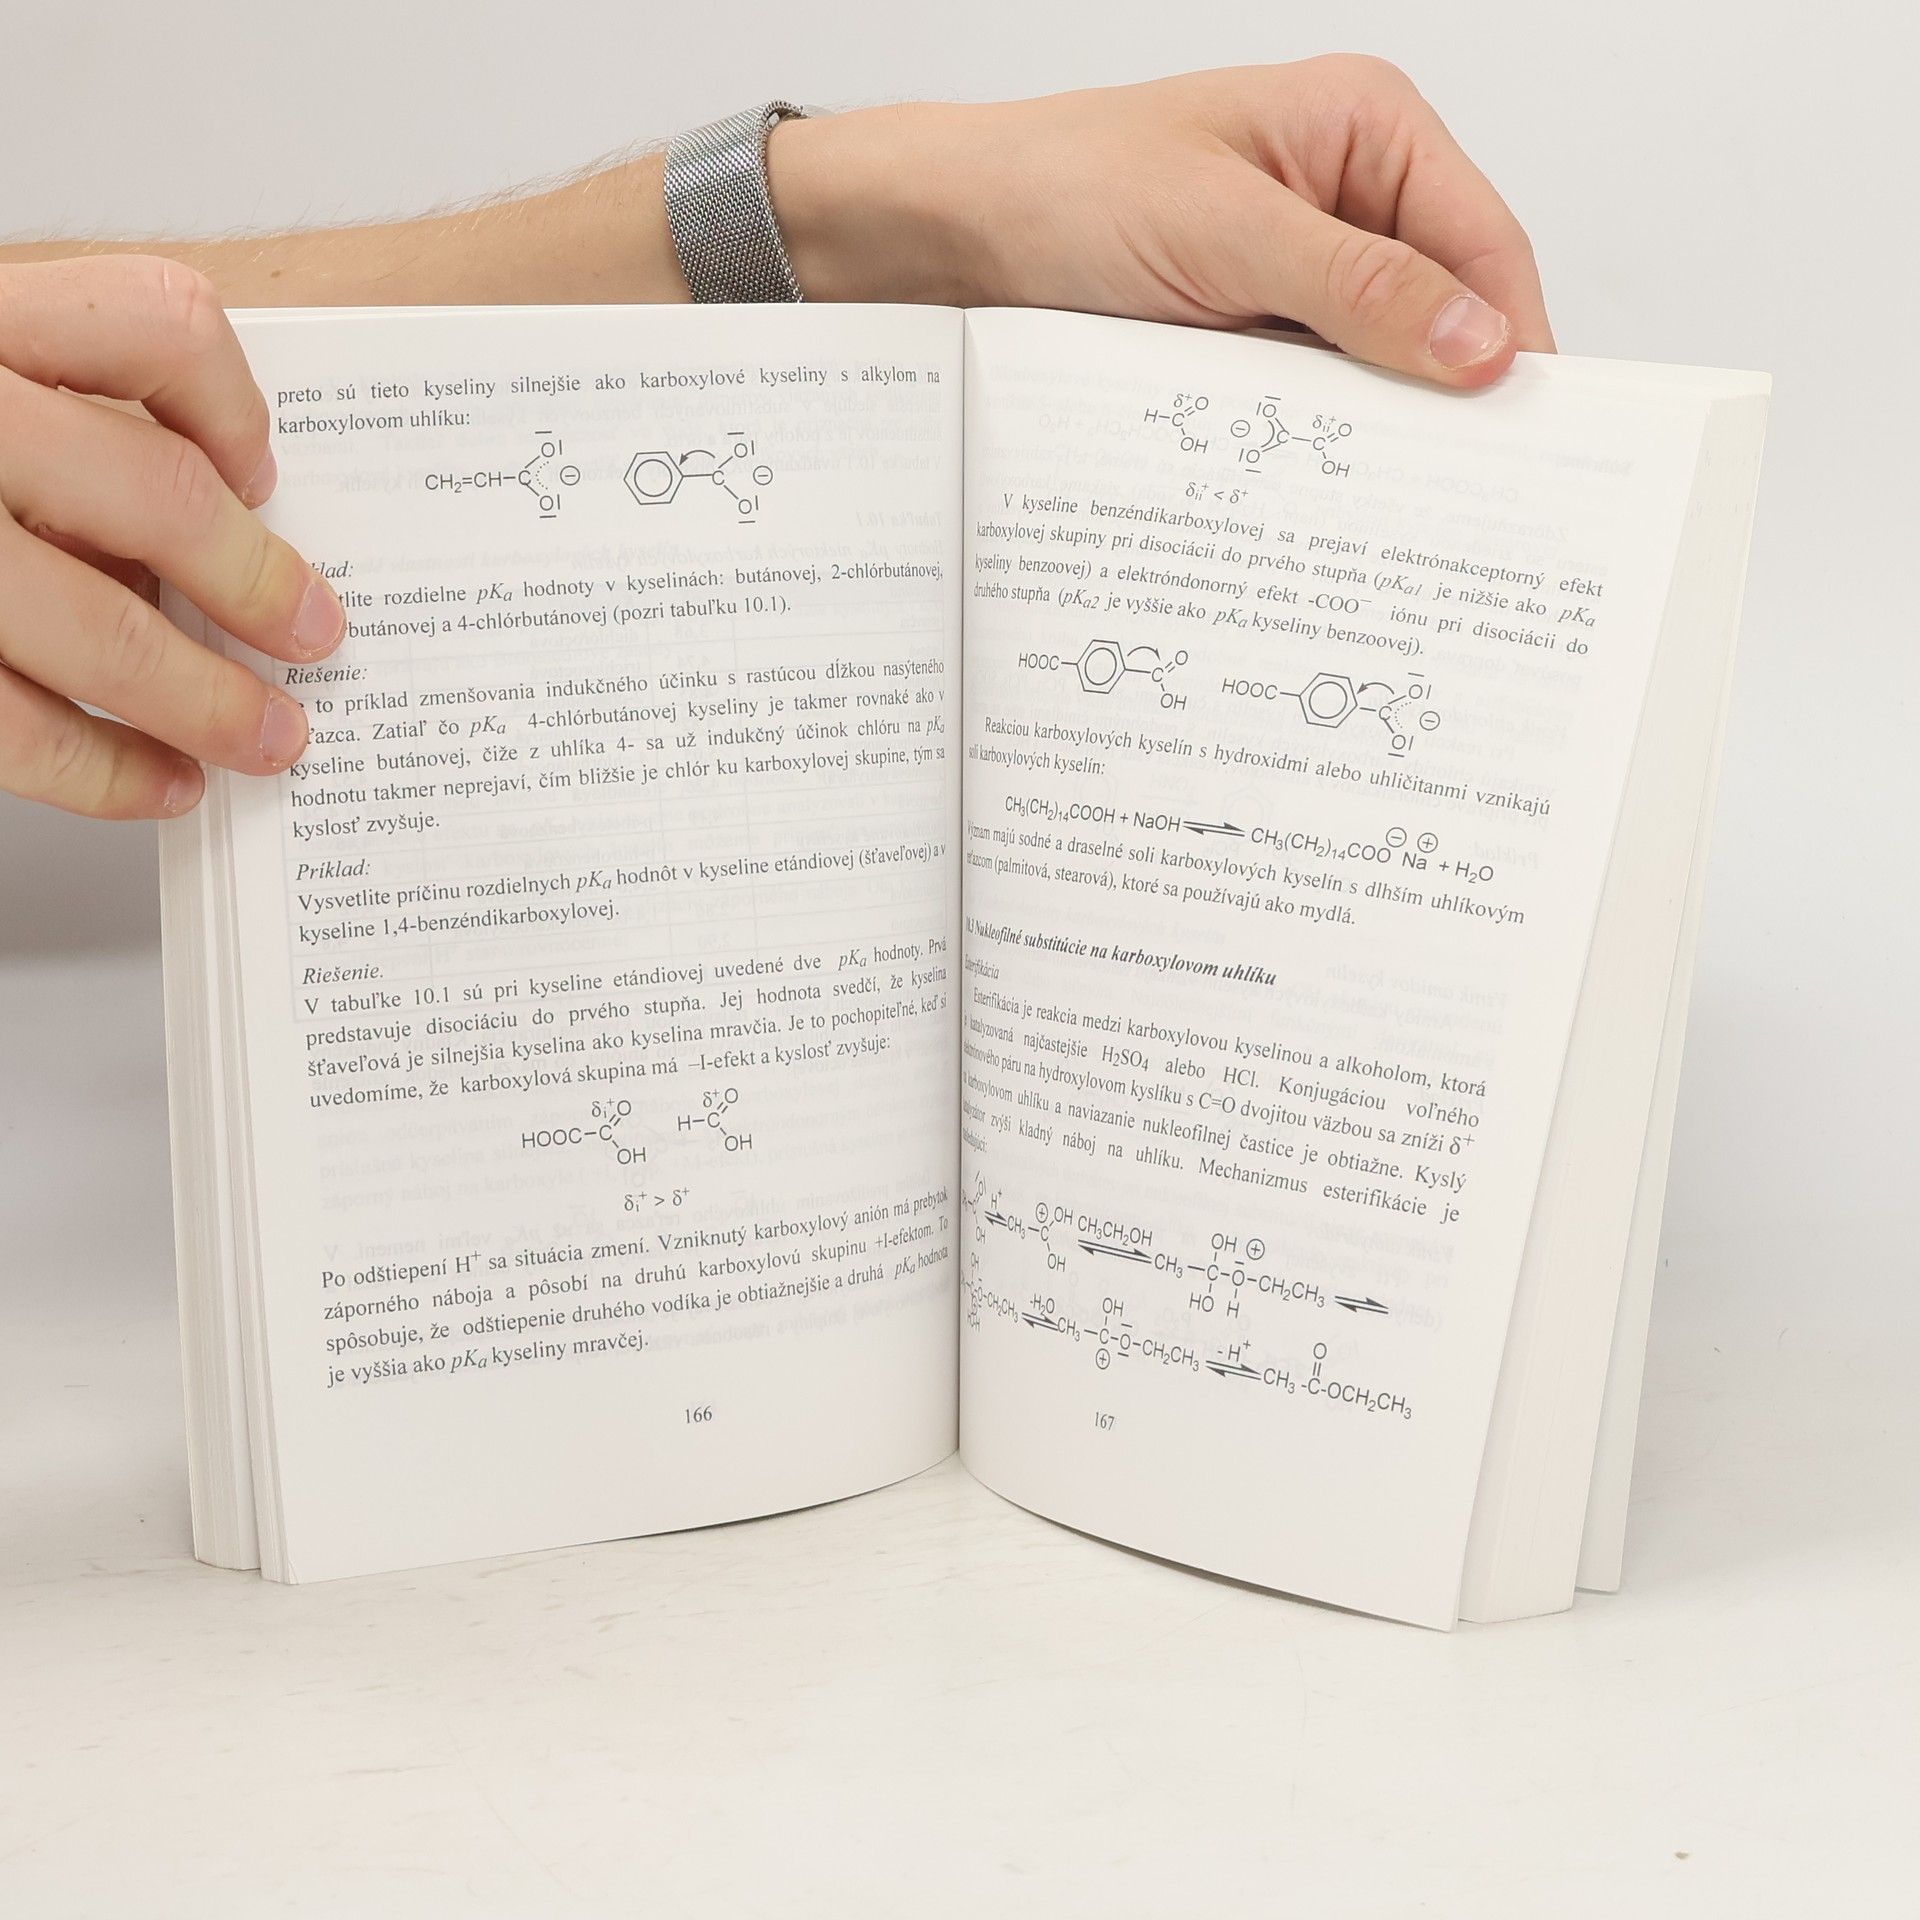 preto sú tieto kyseliny silnejšie ako karboxylové kyseliny s alkylom na
karboxylovom uhlíku:
CH₂=CH–C
OI
⊖
OI
C
OI
⊖
OI
rozdielne pKₐ hodnoty v kyselinách: butánovej, 2-chlórbutánovej,
butánovej a 4-chlórbutánovej (pozri tabuľku 10.1).
Riešenie:
to príklad zmenšovania indukčného účinku s rastúcou dĺžkou nasýteného
Zatiaľ čo pKₐ 4-chlórbutánovej kyseliny je takmer rovnaké ako v
kyseline butánovej, čiže z uhlíka 4- sa už indukčný účinok chlóru na pKₐ
hodnotu takmer neprejaví, čím bližšie je chlór ku karboxylovej skupine, tým sa
kyslosť zvyšuje.
Príklad:
Vysvetlite príčinu rozdielnych pKₐ hodnôt v kyseline etándiovej (šťaveľovej) a v
kyseline 1,4-benzéndikarboxylovej.
Riešenie.
V tabuľke 10.1 sú pri kyseline etándiovej uvedené dve pKₐ hodnoty. Prvá
predstavuje disociáciu do prvého stupňa. Jej hodnota svedčí, že kyselina
šťaveľová je silnejšia kyselina ako kyselina mravčia. Je to pochopiteľné, keď si
uvedomíme, že karboxylová skupina má –I-efekt a kyslosť zvyšuje:
δᵢ⁺ O δ⁺ O
HOOC–C H–C
OH OH
δᵢ⁺ > δ⁺
Po odštiepení H⁺ sa situácia zmení. Vzniknutý karboxylový anión má prebytok
záporného náboja a pôsobí na druhú karboxylovú skupinu +I-efektom. To
spôsobuje, že odštiepenie druhého vodíka je obtiažnejšie a druhá pKₐ hodnota
je vyššia ako pKₐ kyseliny mravčej.
166
δ⁺ O IO δᵢᵢ⁺ O
H–C ⊖ C–C
OH IO OH
δᵢᵢ⁺ < δ⁺
V kyseline benzéndikarboxylovej sa prejaví elektrónakceptorný efekt
karboxylovej skupiny pri disociácii do prvého stupňa (pKₐ₁ je nižšie ako pKₐ
kyseliny benzoovej) a elektróndonorný efekt -COO⁻ iónu pri disociácii do
druhého stupňa (pKₐ₂ je vyššie ako pKₐ kyseliny benzoovej).
HOOC C O OH
HOOC C OI ⊖ OI
Reakciou karboxylových kyselín s hydroxidmi alebo uhličitanmi vznikajú
soli karboxylových kyselín:
CH₃(CH₂)₁₄COOH + NaOH ⇌ CH₃(CH₂)₁₄COO⊖ Na⊕ + H₂O
Význam majú sodné a draselné soli karboxylových kyselín s dlhším uhlíkovým
reťazcom (palmitová, stearová), ktoré sa používajú ako mydlá.
10.3 Nukleofilné substitúcie na karboxylovom uhlíku
Esterifikácia
Esterifikácia je reakcia medzi karboxylovou kyselinou a alkoholom, ktorá
je katalyzovaná najčastejšie H₂SO₄ alebo HCl. Konjugáciou voľného
elektrónového páru na hydroxylovom kyslíku s C=O dvojitou väzbou sa zníži δ⁺
karboxylovom uhlíku a naviazanie nukleofilnej častice je obtiažne. Kyslý
katalyzátor zvýši kladný náboj na uhlíku. Mechanizmus esterifikácie je
H⁺ ⇌ CH₃–C ⊕ OH OH CH₃CH₂OH ⇌ CH₃–C–O–CH₂CH₃ OH ⊕ HO H ⇌
–CH₂CH₃ -H₂O ⇌ CH₃–C–O–CH₂CH₃ OH ⊕ - H⁺ ⇌ CH₃-C-OCH₂CH₃ O
167